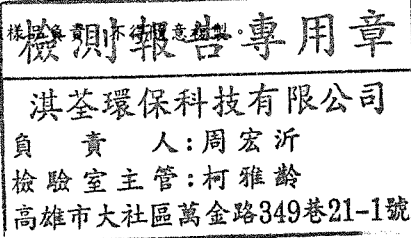 樣品負責，亦得隨意複製。
檢測報告專用章
淇荃環保科技有限公司
負責人：周宏沂
檢驗室主管：柯雅齡
高雄市大社區萬金路349巷21-1號